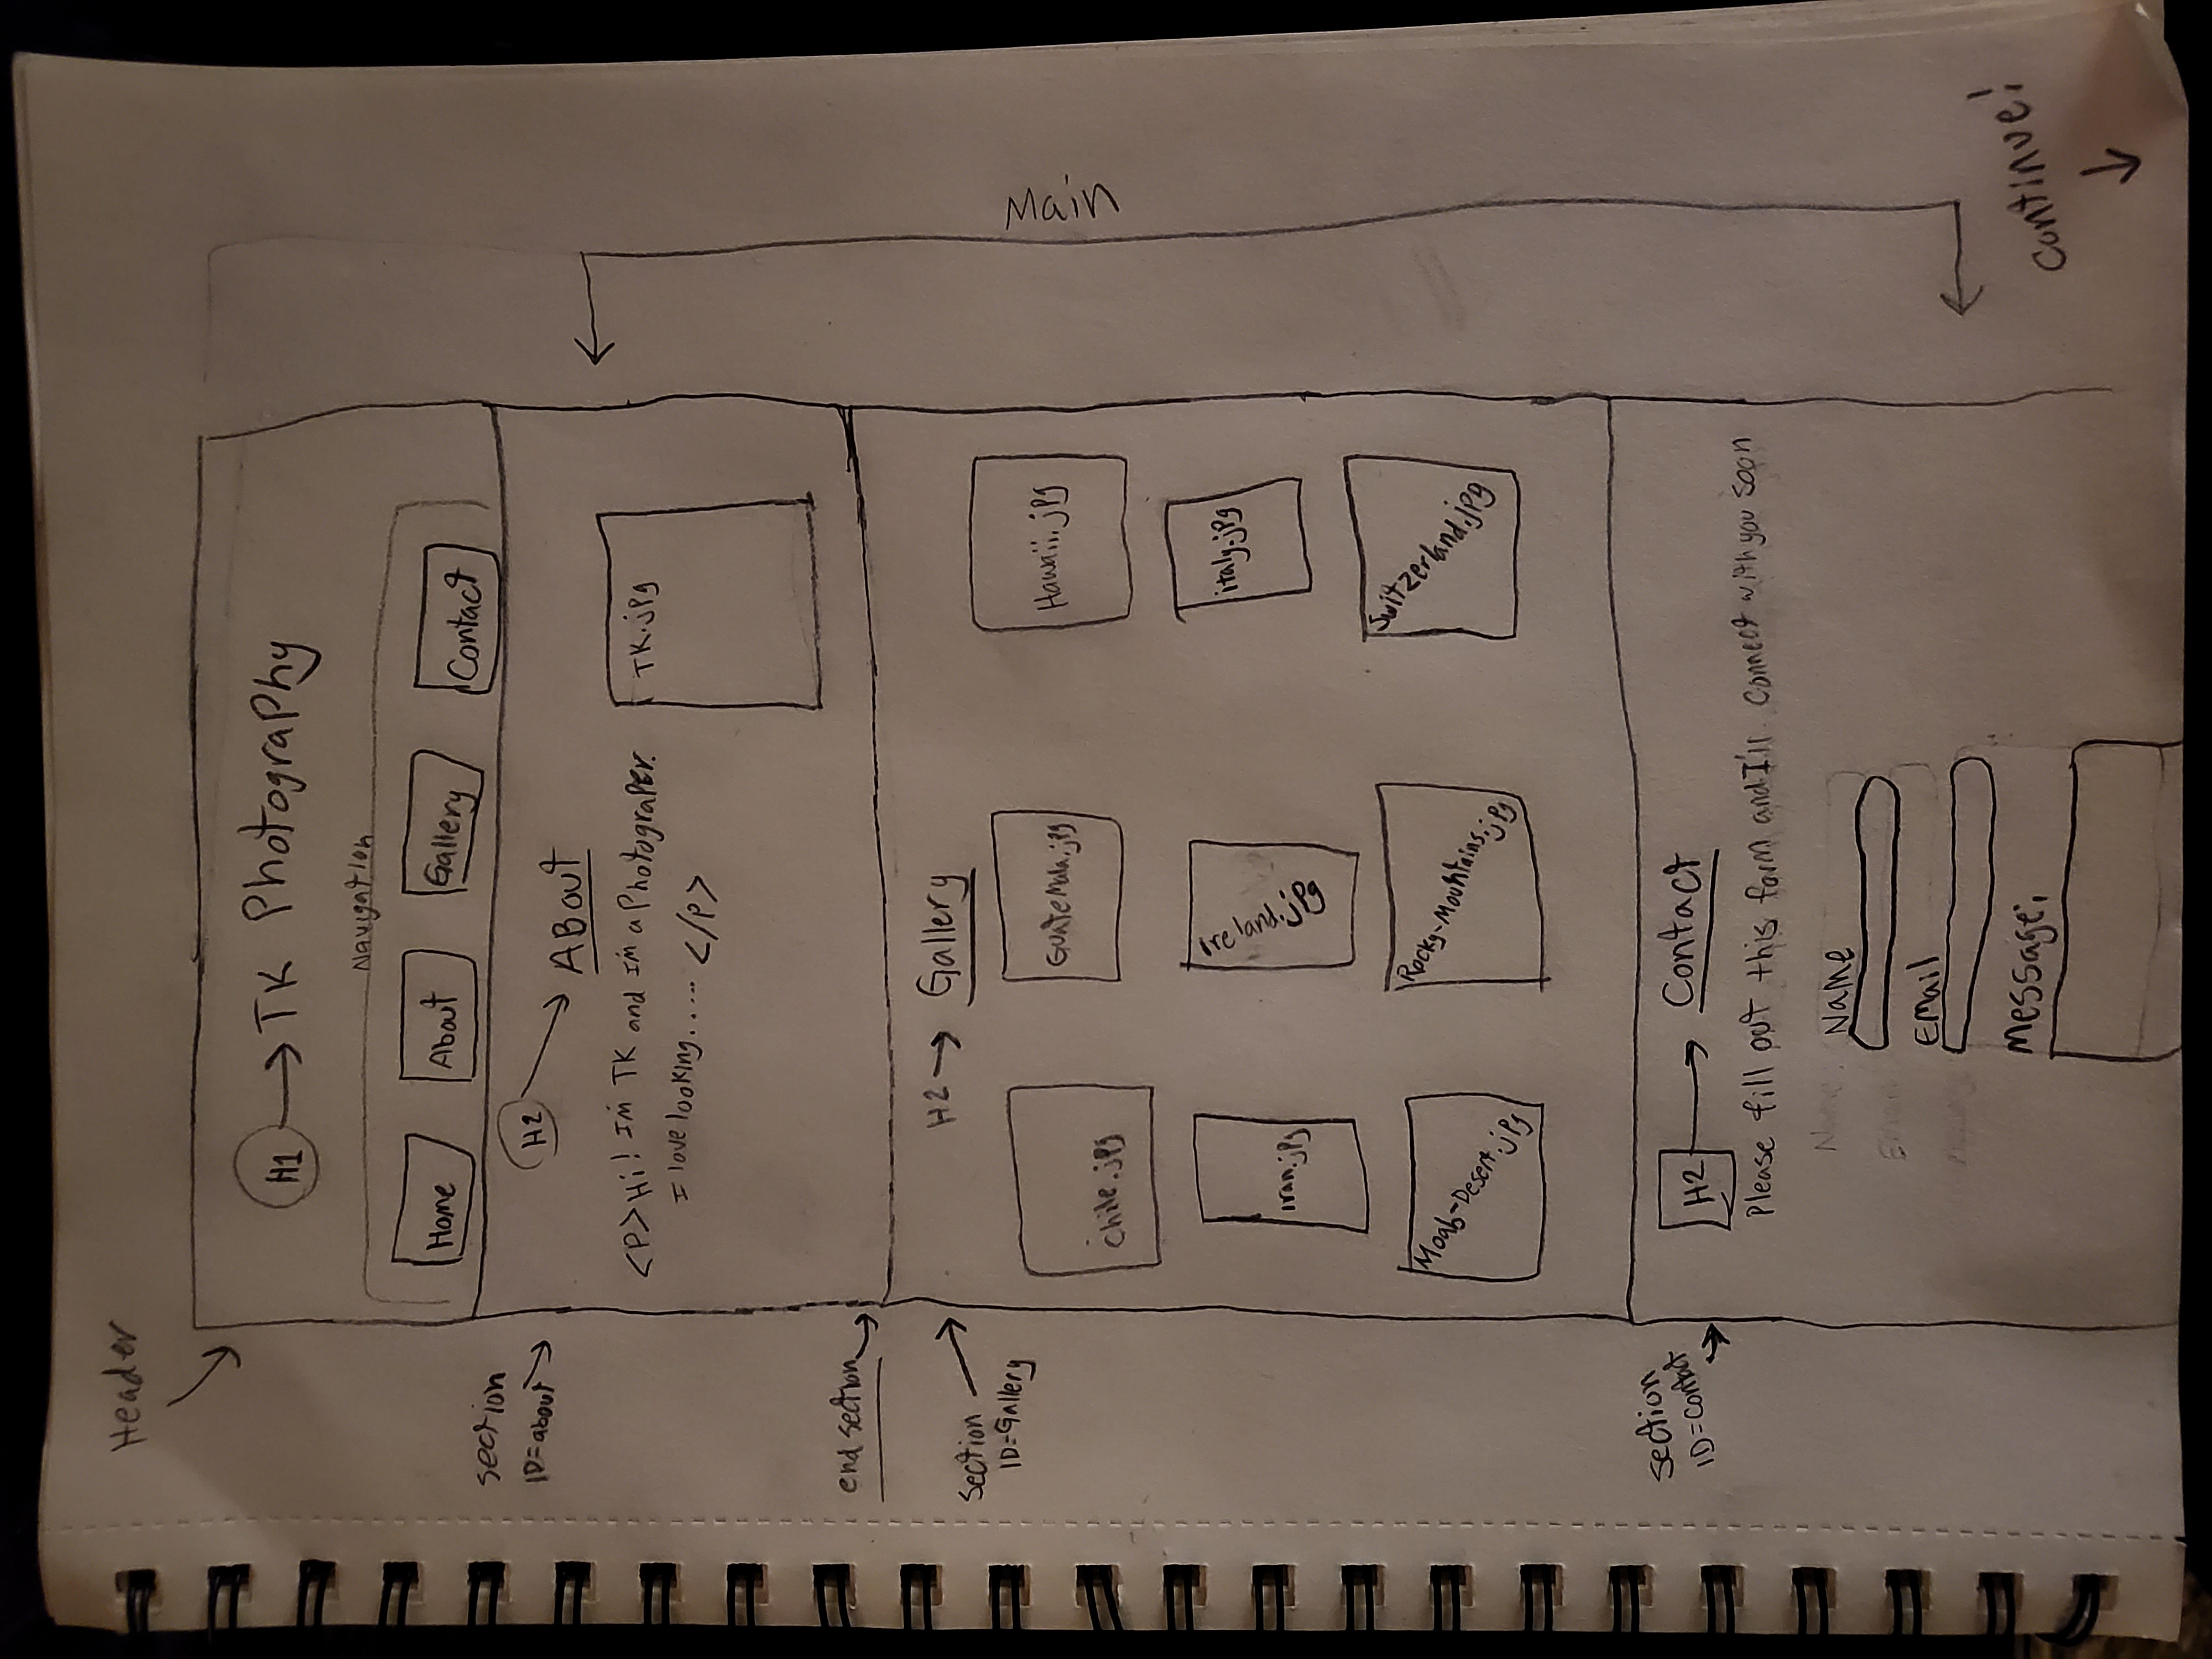 Header
H1 TK Photography
Navigation
Home About Gallery Contact
section
ID=about
H2
ABout
<P>Hi! I'm TK and I'm a Photograper.
I love looking..... </P>
TK.jpg
end section
H2 Gallery
Section
ID=Gallery
Chile.jpg GuateMala.jpg Hawaii.jpg
iran.jpg Ireland.jpg italy.jpg
Moab-Desert.jpg Rocky-Mountains.jpg Switzerland.jpg
Main
section
ID=contact
H2 Contact
Please fill out this form and I'll connect with you soon
Name
Name
Email
EMail
Message:
Continue!